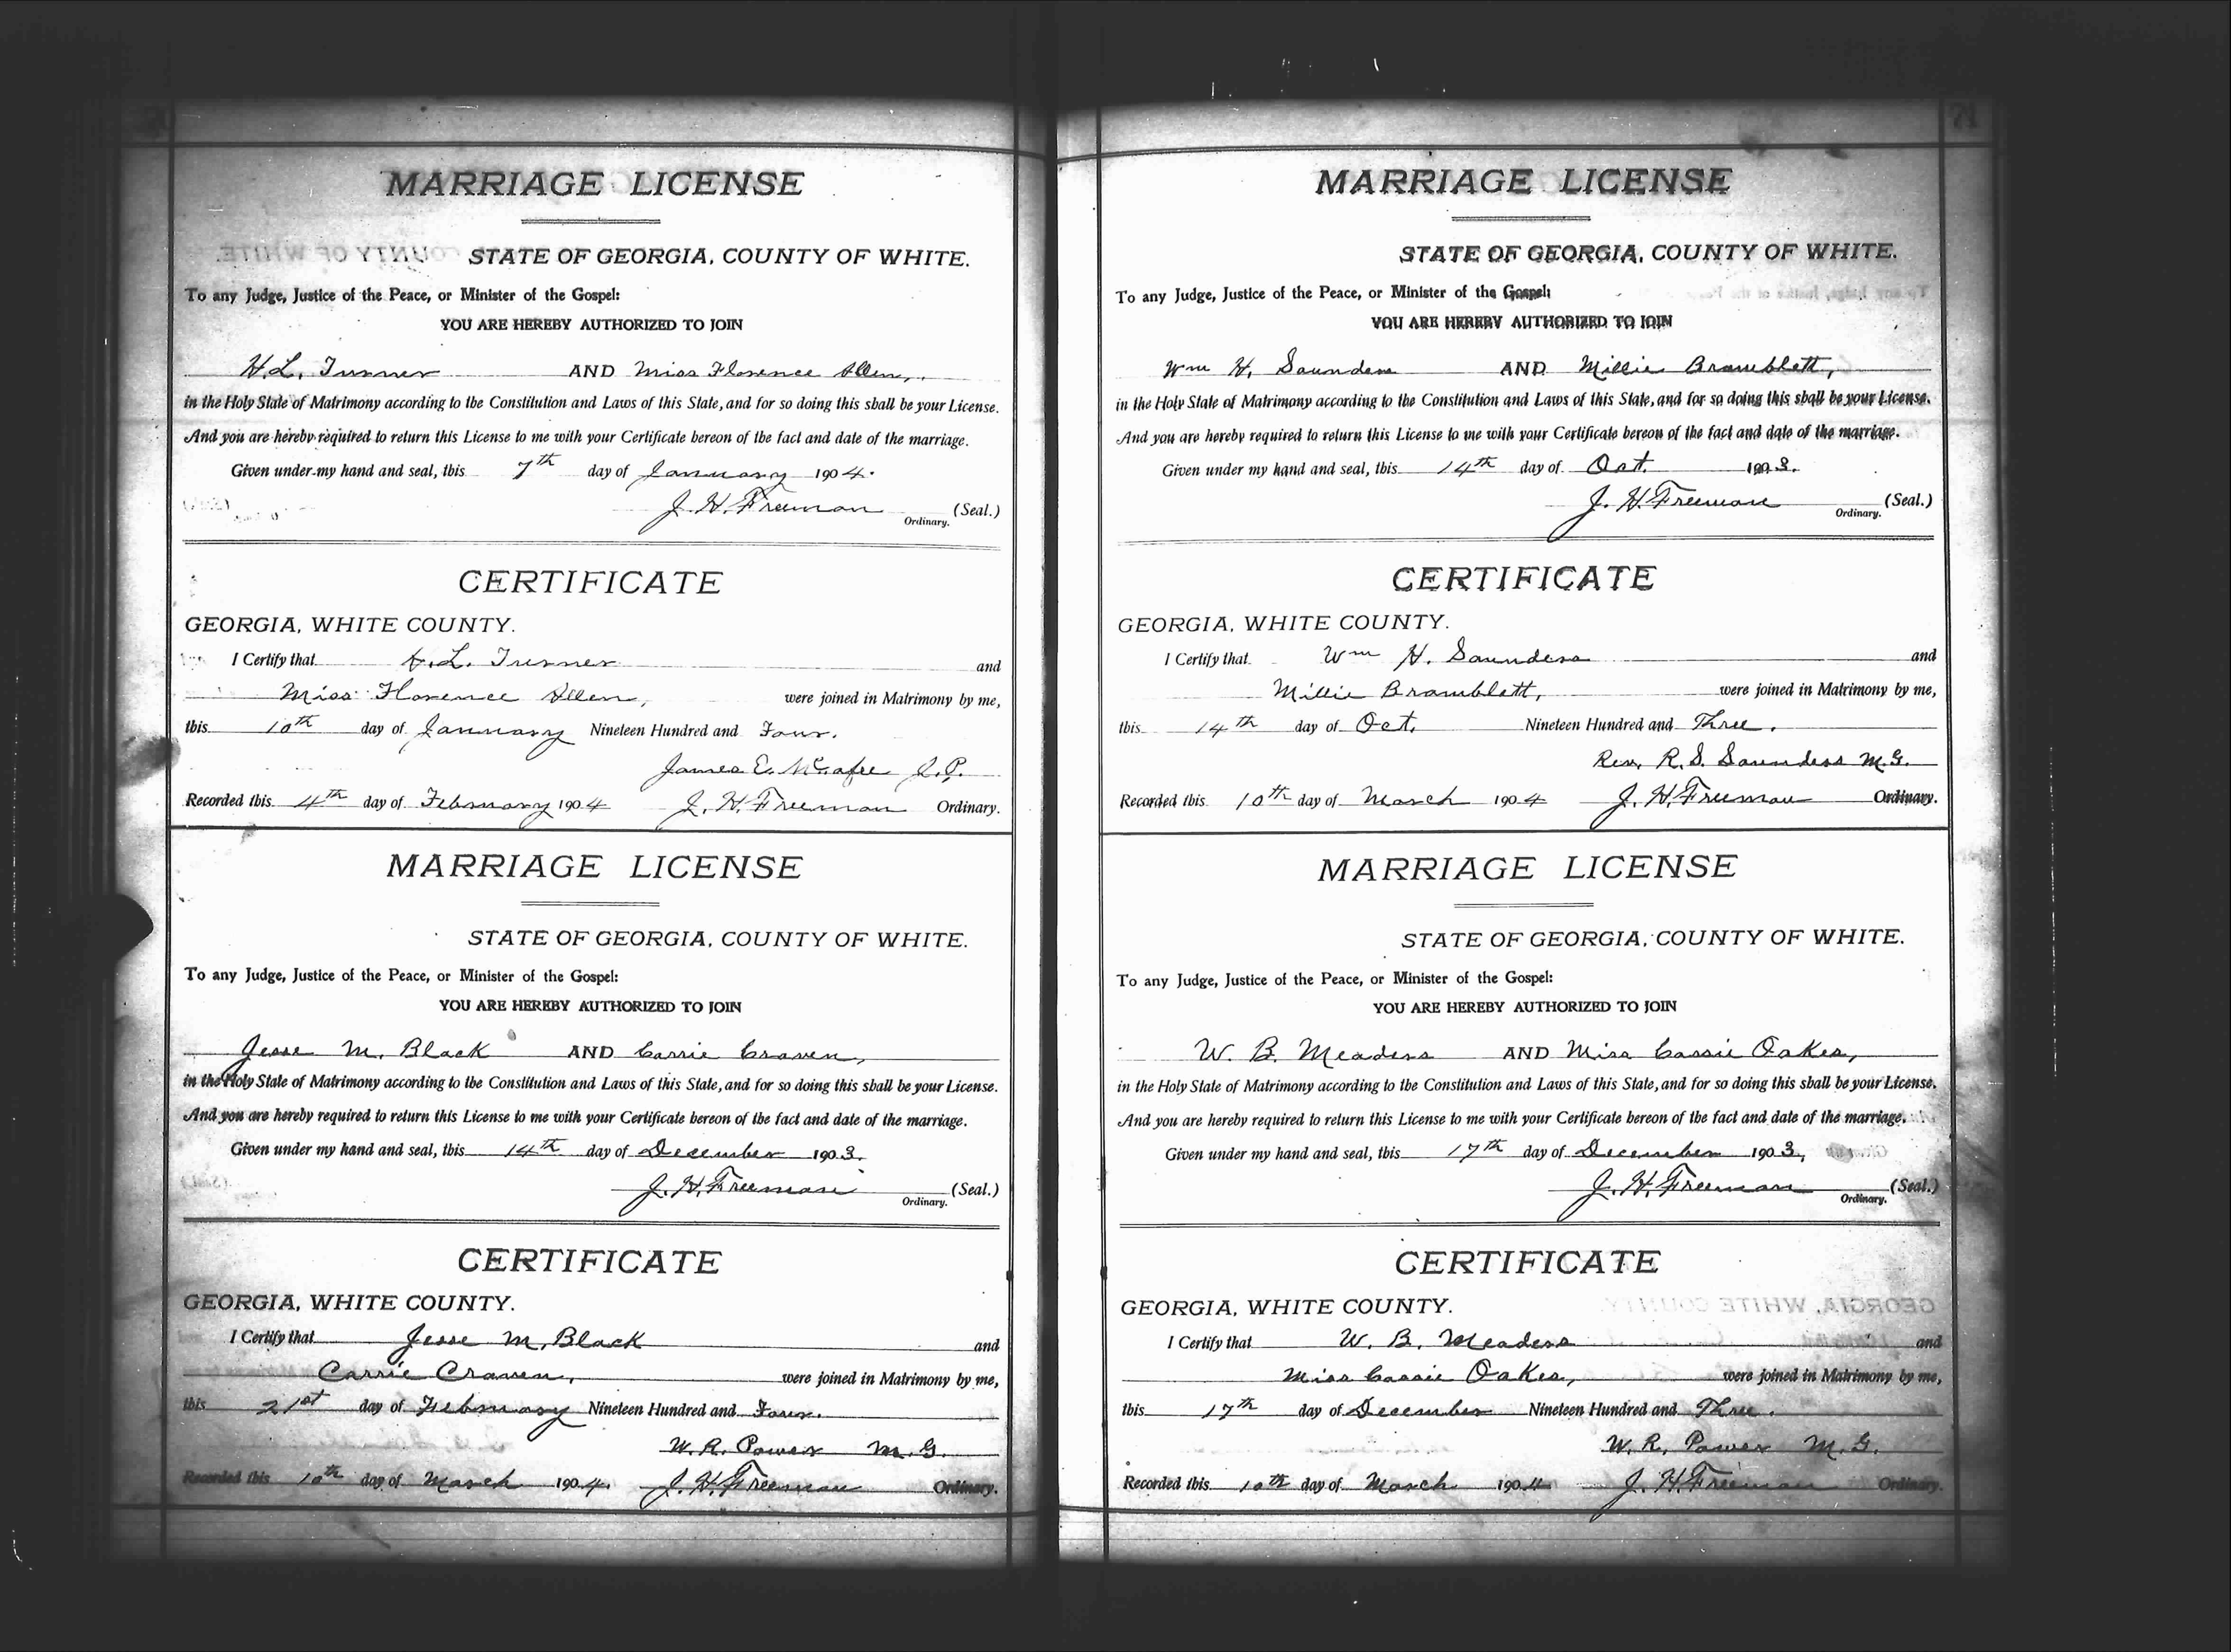 MARRIAGE LICENSE
STATE OF GEORGIA, COUNTY OF WHITE.
To any Judge, Justice of the Peace, or Minister of the Gospel:
YOU ARE HEREBY AUTHORIZED TO JOIN
H. L. Turner AND Miss Florence Allen,
in the Holy State of Matrimony according to the Constitution and Laws of this State, and for so doing this shall be your License.
And you are hereby required to return this License to me with your Certificate hereon of the fact and date of the marriage.
Given under my hand and seal, this 7th day of January 1904.
J. H. Freeman (Seal.)
Ordinary.
CERTIFICATE
GEORGIA, WHITE COUNTY.
I Certify that H. L. Turner and
Miss Florence Allen, were joined in Matrimony by me,
this 10th day of January Nineteen Hundred and Four.
James E. McAfee J.P.
Recorded this 4th day of February 1904 J. H. Freeman Ordinary.
MARRIAGE LICENSE
STATE OF GEORGIA, COUNTY OF WHITE.
To any Judge, Justice of the Peace, or Minister of the Gospel:
YOU ARE HEREBY AUTHORIZED TO JOIN
Jesse M. Black AND Carrie Craven,
in the Holy State of Matrimony according to the Constitution and Laws of this State, and for so doing this shall be your License.
And you are hereby required to return this License to me with your Certificate hereon of the fact and date of the marriage.
Given under my hand and seal, this 14th day of December 1903.
J. H. Freeman (Seal.)
Ordinary.
CERTIFICATE
GEORGIA, WHITE COUNTY.
I Certify that Jesse M. Black and
Carrie Craven, were joined in Matrimony by me,
this 21st day of February Nineteen Hundred and Four.
W. R. Power M. G.
Recorded this 10th day of March 1904. J. H. Freeman Ordinary.
71
MARRIAGE LICENSE
STATE OF GEORGIA, COUNTY OF WHITE.
To any Judge, Justice of the Peace, or Minister of the Gospel:
YOU ARE HEREBY AUTHORIZED TO JOIN
Wm H. Saunders AND Millie Bramblett,
in the Holy State of Matrimony according to the Constitution and Laws of this State, and for so doing this shall be your License.
And you are hereby required to return this License to me with your Certificate hereon of the fact and date of the marriage.
Given under my hand and seal, this 14th day of Oct. 1903.
J. H. Freeman (Seal.)
Ordinary.
CERTIFICATE
GEORGIA, WHITE COUNTY.
I Certify that Wm H. Saunders and
Millie Bramblett, were joined in Matrimony by me,
this 14th day of Oct. Nineteen Hundred and Three.
Rev. R. S. Saunders M.G.
Recorded this 10th day of March 1904 J. H. Freeman Ordinary.
MARRIAGE LICENSE
STATE OF GEORGIA, COUNTY OF WHITE.
To any Judge, Justice of the Peace, or Minister of the Gospel:
YOU ARE HEREBY AUTHORIZED TO JOIN
W. B. Meaders AND Miss Cassie Oakes,
in the Holy State of Matrimony according to the Constitution and Laws of this State, and for so doing this shall be your License.
And you are hereby required to return this License to me with your Certificate hereon of the fact and date of the marriage.
Given under my hand and seal, this 17th day of December 1903,
J. H. Freeman (Seal.)
Ordinary.
CERTIFICATE
GEORGIA, WHITE COUNTY.
I Certify that W. B. Meaders and
Miss Cassie Oakes, were joined in Matrimony by me,
this 17th day of December Nineteen Hundred and Three.
W. R. Power M. G.
Recorded this 10th day of March 1904 J. H. Freeman Ordinary.